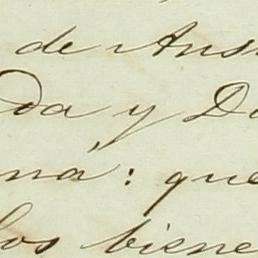 de Ans
da y Do
na: que
los biene